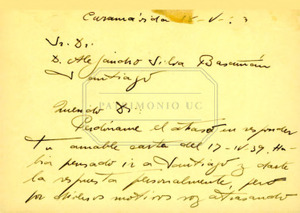 Sr. Dr.
D. Alejandro Silva Bascuñán
Santiago
PATRIMONIO UC
Querido Dr.:
Perdóname el atraso en responder
tu amable carta del 17-IV 39. Ha
bía pensado ir a Santiago y darte
la respuesta personalmente, pero
por diversos motivos voy atrasando